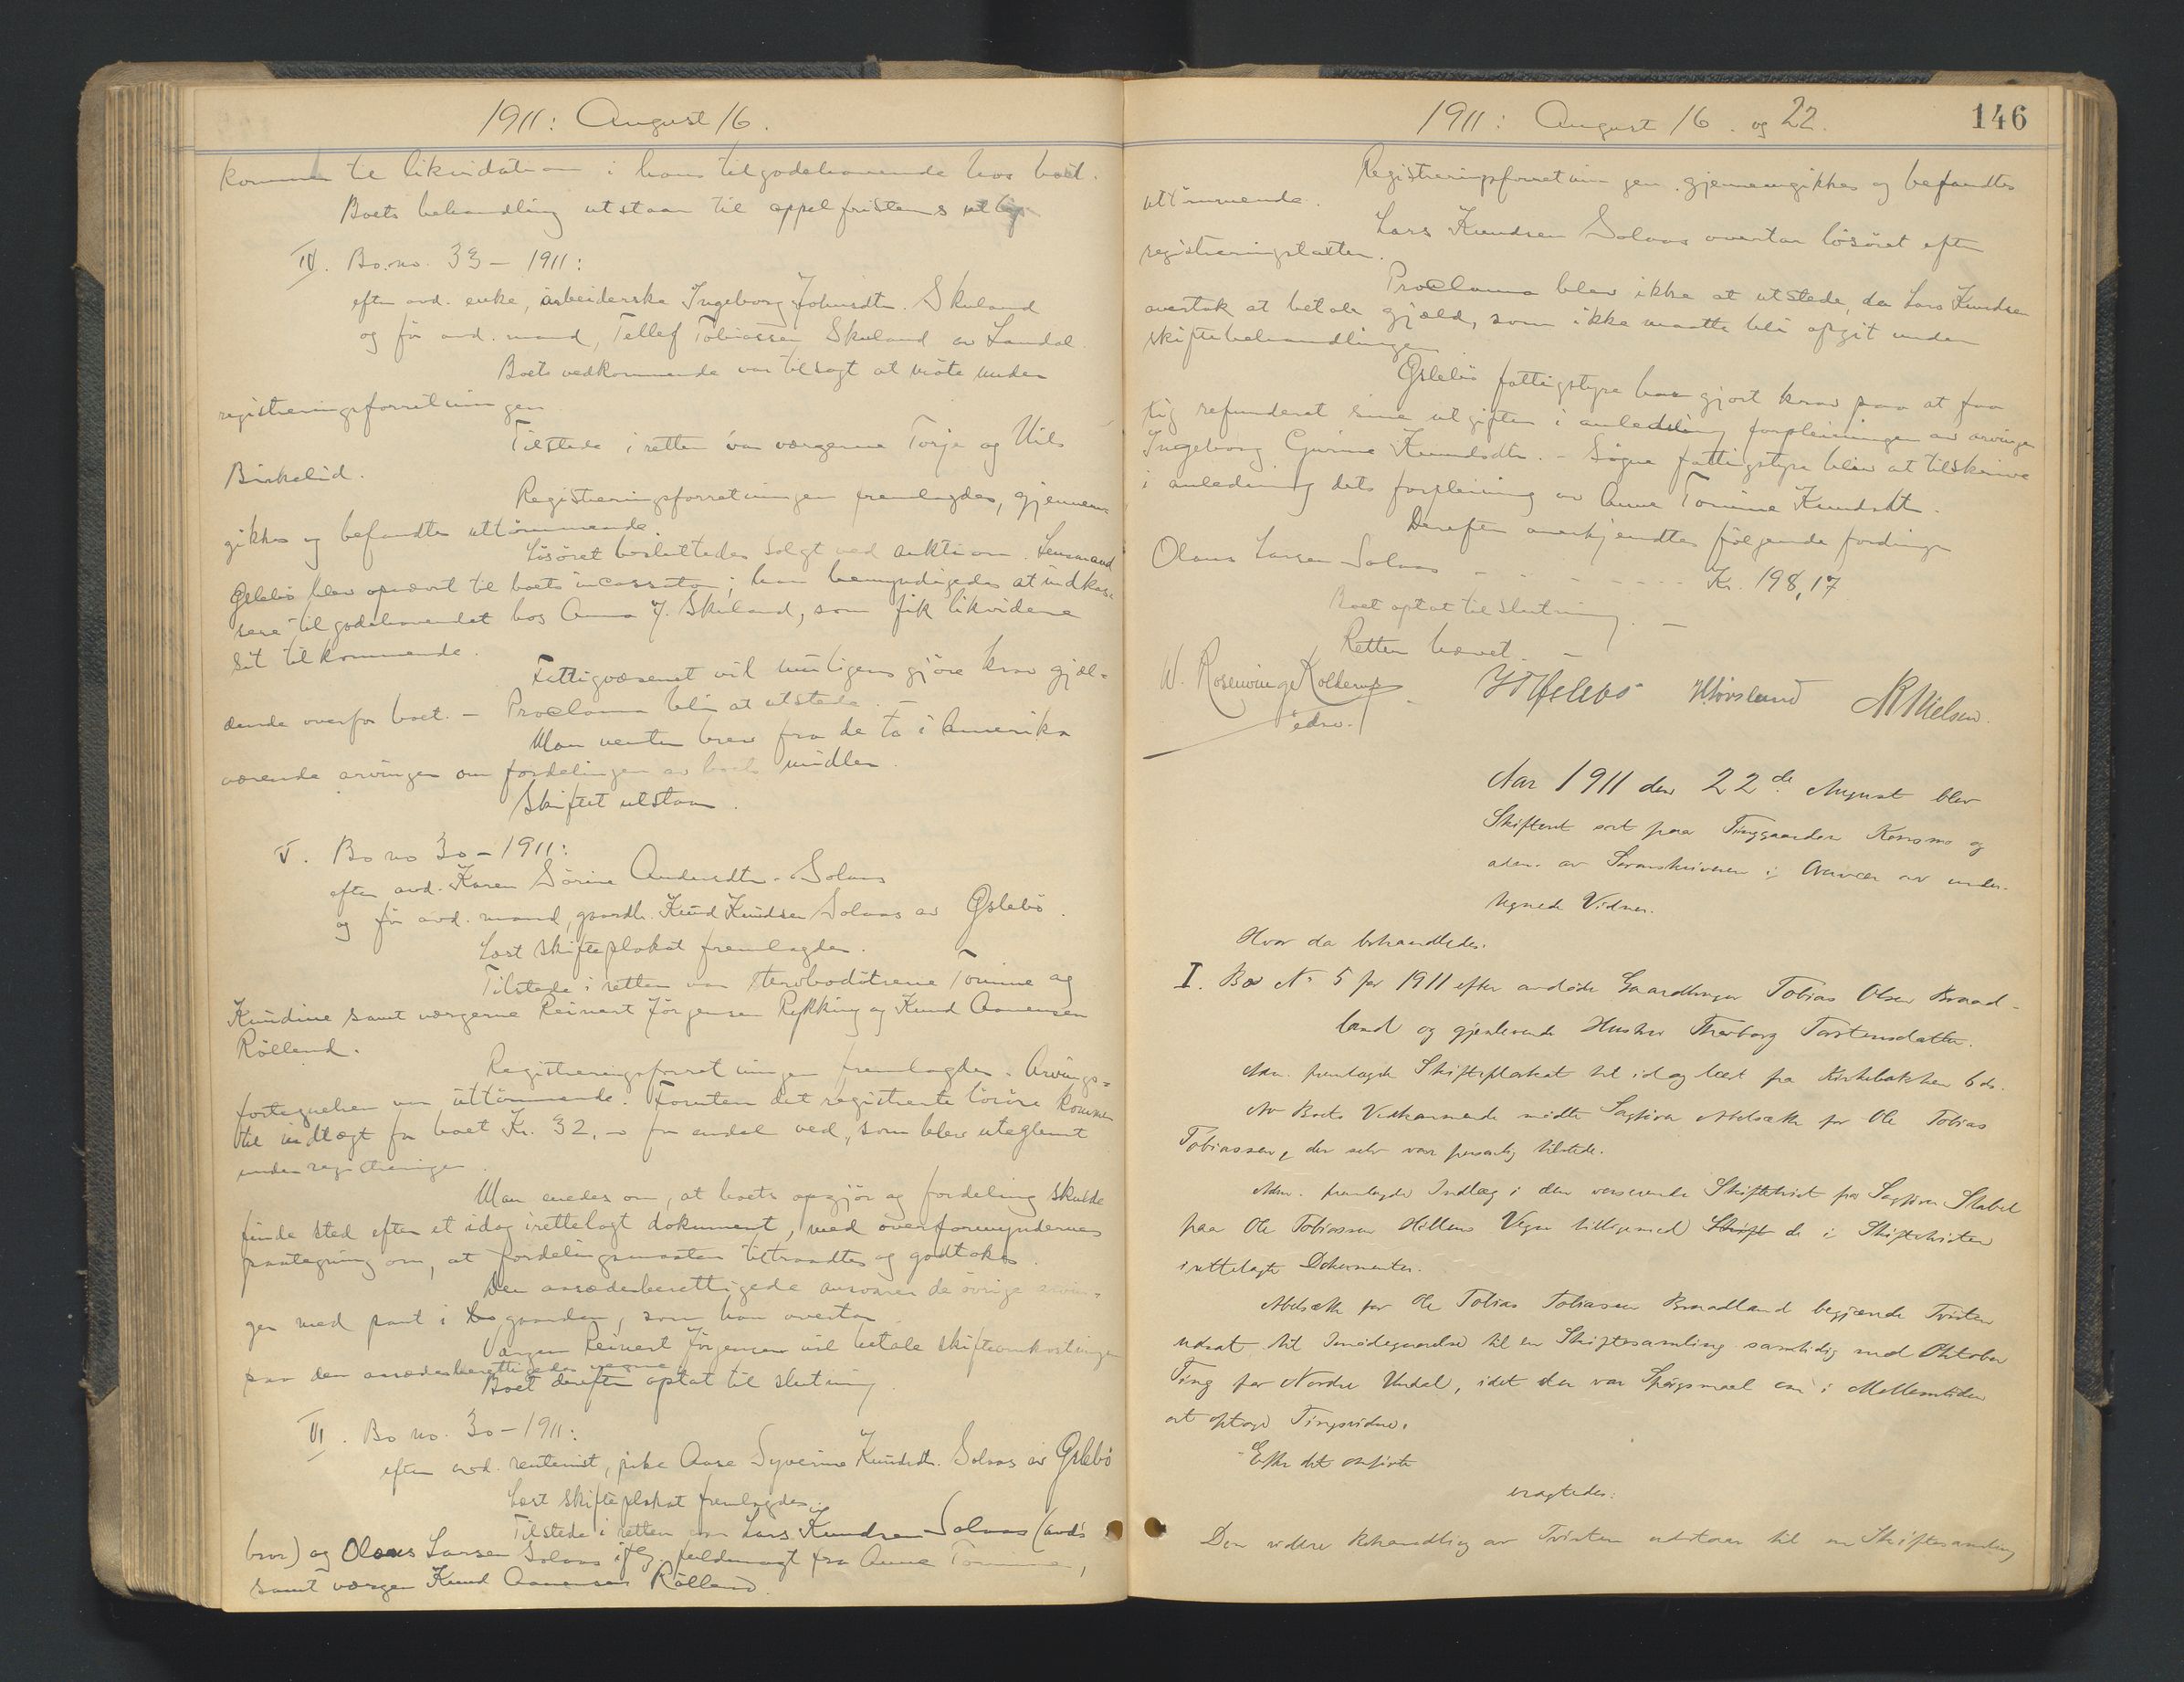 1911: August 16.
kommer til likvidation i hans tilgodehavende hos boet.
Boets behandling utstaar til appelfristens utløp
IV. Bo no. 33 – 1911:
efter avd. enke, arbeiderske Ingeborg Johnsdtr. Skuland
og før avd. mand, Tellef Tobiassen Skuland av Laudal.
Boets vedkommende var tilsagt at møte under
registreringsforretningen
Tilstede i retten var værgerne Torje og Nils
Birkelid.
Registreringsforretningen fremlagdes, gjennem-
gikkes og befandtes uttømmende.
Løsøret besluttedes solgt ved auktion. Lensmand
Øslebø blev opnævnt til boets incassator; han bemyndigedes at indkas-
sere tilgodehavendet hos Anna J. Skuland, som fik likvidere
sit tilkommende.
Fattigvæsenet vil muligens gjøre krav gjæl-
dende overfor boet. – Proclama blir at utstede. –
Man venter brev fra de to i Amerika
værende arvinger om fordelingen av boets midler.
Skiftet utstaar.
V. Bo no 30 – 1911:
efter avd. Karen Sørine Andersdtr. Solaas
og før avd. mand, gaardbr. Knud Knudsen Solaas av Øslebø.
Læst skifteplakat fremlagdes.
Tilstede i retten var stervbodøtrene Tomine og
Knudine samt værgerne Reinert Jørgensen Rykking og Knud Aanensen
Rølland.
Registreringsforretningen fremlagdes. Arvings-
fortegnelsen var uttømmende. Foruten det registrerte løsøre kommer
til indtægt for boet Kr. 32,– for endel ved, som blev uteglemt
under registreringen.
Man enedes om, at boets opgjør og fordeling skulde
finde sted efter et idag irettelagt dokument, med overformyndernes
paategning om, at fordelingsmaaten tiltraadtes og godtokes.
Den aasædesberettigede ansvarer de øvrige arvin-
ger med pant i gaarden, som han overtar
Værgen Reinert Jørgensen vil betale skifteomkostningen
paa den aasædesberettigedes vegne
Boet derefter optat til slutning.
VI. Bo no. 30 – 1911:
efter avd. rentenist, pike Aase Syverine Knudsdtr. Solaas av Øslebø
Læst skifteplakat fremlagdes.
Tilstede i retten var Lars Knudsen Solaas (avd's
bror) og Olaus Larsen Solaas ifølge fuldmagt fra Anne Tomine,
samt værgen Knud Aanensen Rølland.
1911: August 16. og 22.
146
Registreringsforretningen gjennemgikkes og befandtes
uttømmende.
Lars Knudsen Solaas overtar løsøret efter
registreringstaksten.
Proclama blev ikke at utstede, da Lars Knudsen
overtok at betale gjæld, som ikke maatte bli opgit under
skiftebehandlingen
Øslebø fattigstyre har gjort krav paa at faa
sig refunderet sine utgifter i anledning forpleiningen av arvingen
Ingeborg Gurine Knudsdtr. – Søgne fattigstyre blev at tilskrive
i anledning dets forpleining av Anne Tomine Knudsdtr.
Derefter anerkjendtes følgende fordring
Olaus Larsen Solaas – – – – – Kr. 198,17
Boet optat til slutning. –
Retten hævet. –
W. Rosenvinge Kolderup
edsv.
Øslebø
Hörsland
Nielsen.
Aar 1911 den 22de August blev
Skifteret sat paa Tinggaarden Konsmo og
adm. av Sorenskriveren i Overvær av under-
tegnede Vidner.
Hvor da behandledes.
I. Bo No 5 for 1911 efter avdøde Gaardbruger Tobias Olsen Braad-
land og gjenlevende Hustru Therborg Torstensdatter.
Adm. fremlagde Skifteplakat til idag læst fra Kirkebakken 6 ds.
Av Boets Vedkommende mødte Sagfører Abelsæth for Ole Tobias
Tobiassen, der selv var personlig tilstede.
Adm. fremlagde Indlæg i den verserende Skiftetvist fra Sagfører Stabel
paa Ole Tobiassen Hillens Vegne tilligemed de i Skiftetvisten
irettelagte Dokumenter.
Abelsæth for Ole Tobias Tobiassen Braadland begjærede Tvisten
udsat til Imødegaaelse til en Skiftesamling samtidig med Oktober
Ting for Nordre Undal, idet der var Spørgsmaal om i Mellemtiden
at optage Tingsvidne.
Efter det anførte
eragtedes:
Den videre Behandling av Tvisten udstaar til en Skiftesamling